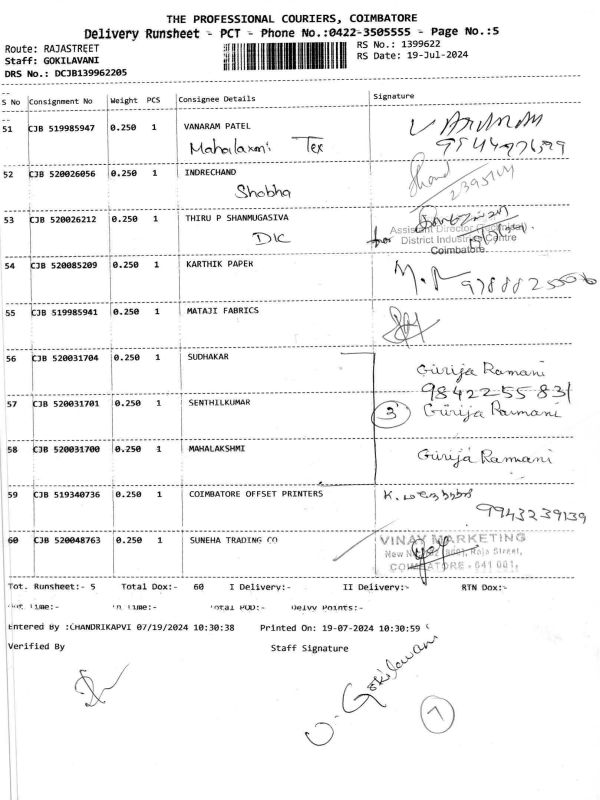 THE PROFESSIONAL COURIERS, COIMBATORE
Delivery Runsheet - PCT - Phone No.:0422-3505555 - Page No.:5
Route: RAJASTREET
RS No.: 1399622
Staff: GOKILAVANI
RS Date: 19-Jul-2024
DRS No.: DCJB139962205
S No Consignment No Weight PCS Consignee Details Signature
51 CJB 519985947 0.250 1 VANARAM PATEL
Mahalaxmi Tex
52 CJB 520026056 0.250 1 INDRECHAND
Shobha
53 CJB 520026212 0.250 1 THIRU P SHANMUGASIVA
DIC
Assistant Director
District Industries Centre
Coimbatore.
54 CJB 520085209 0.250 1 KARTHIK PAPER
55 CJB 519985941 0.250 1 MATAJI FABRICS
56 CJB 520031704 0.250 1 SUDHAKAR
Girija Ramani
9842255831
57 CJB 520031701 0.250 1 SENTHILKUMAR
3 Girija Ramani
58 CJB 520031700 0.250 1 MAHALAKSHMI
Girija Ramani
59 CJB 519340736 0.250 1 COIMBATORE OFFSET PRINTERS
9943239139
60 CJB 520048763 0.250 1 SUNEHA TRADING CO
VINAY MARKETING
Raja Street,
COIMBATORE - 641 001.
Tot. Runsheet:- 5 Total Dox:- 60 I Delivery:- II Delivery:- RTN Dox:-
Out Time:- In Time:- Total POD:- Delvy Points:-
Entered By :CHANDRIKAPVI 07/19/2024 10:30:38 Printed On: 19-07-2024 10:30:59
Verified By Staff Signature
V. Gokilavani
7